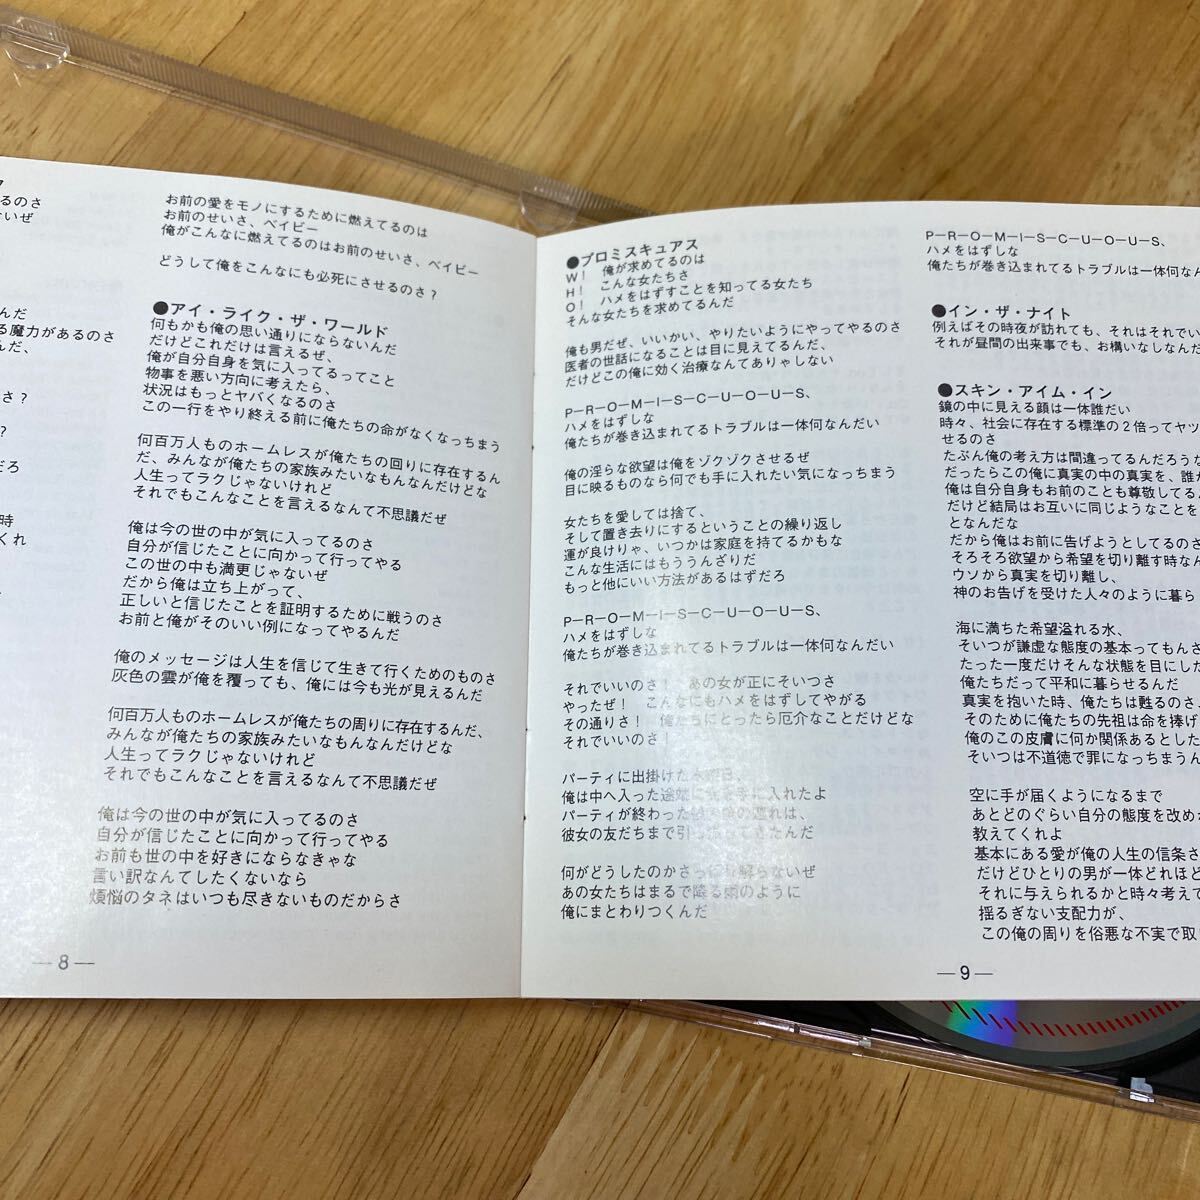 るのさ
いぜ
んだ
る魔力があるのさ
んだ、
さ？
？
だろ
時
くれ
お前の愛をモノにするために燃えてるのは
お前のせいさ、ベイビー
俺がこんなに燃えてるのはお前のせいさ、ベイビー
どうして俺をこんなにも必死にさせるのさ？
●アイ・ライク・ザ・ワールド
何もかも俺の思い通りにならないんだ
だけどこれだけは言えるぜ、
俺が自分自身を気に入ってるってこと
物事を悪い方向に考えたら、
状況はもっとヤバくなるのさ
この一行をやり終える前に俺たちの命がなくなっちまう
何百万人ものホームレスが俺たちの回りに存在するん
だ、みんなが俺たちの家族みたいなもんなんだけどな
人生ってラクじゃないけれど
それでもこんなことを言えるなんて不思議だぜ
俺は今の世の中が気に入ってるのさ
自分が信じたことに向かって行ってやる
この世の中も満更じゃないぜ
だから俺は立ち上がって、
正しいと信じたことを証明するために戦うのさ
お前と俺がそのいい例になってやるんだ
俺のメッセージは人生を信じて生きて行くためのものさ
灰色の雲が俺を覆っても、俺には今も光が見えるんだ
何百万人ものホームレスが俺たちの周りに存在するんだ、
みんなが俺たちの家族みたいなもんなんだけどな
人生ってラクじゃないけれど
それでもこんなことを言えるなんて不思議だぜ
俺は今の世の中が気に入ってるのさ
自分が信じたことに向かって行ってやる
お前も世の中を好きにならなきゃな
言い訳なんてしたくないなら
煩悩のタネはいつも尽きないものだからさ
—8—
●プロミスキュアス
W！　俺が求めてるのは
H！　こんな女たちさ
O！　ハメをはずすことを知ってる女たち
そんな女たちを求めてるんだ
俺も男だぜ、いいかい、やりたいようにやってやるのさ
医者の世話になることは目に見えてるんだ、
だけどこの俺に効く治療なんてありゃしない
P—R—O—M—I—S—C—U—O—U—S、
ハメをはずしな
俺たちが巻き込まれてるトラブルは一体何なんだい
俺の淫らな欲望は俺をゾクゾクさせるぜ
目に映るものなら何でも手に入れたい気になっちまう
女たちを愛しては捨て、
そして置き去りにするということの繰り返し
運が良けりゃ、いつかは家庭を持てるかもな
こんな生活にはもううんざりだ
もっと他にいい方法があるはずだろ
P—R—O—M—I—S—C—U—O—U—S、
ハメをはずしな
俺たちが巻き込まれてるトラブルは一体何なんだい
それでいいのさ！　あの女が正にそいつさ
やったぜ！　こんなにもハメをはずしてやがる
その通りさ！　俺たちにとったら厄介なことだけどな
それでいいのさ！
パーティに出掛けた水曜日、
俺は中へ入った途端に女を手に入れたよ
パーティが終わった
彼女の友だちまで引っ張ってきたんだ
何がどうしたのかさっぱり解らないぜ
あの女たちはまるで降る雨のように
俺にまとわりつくんだ
P—R—O—M—I—S—C—U—O—U—S、
ハメをはずしな
俺たちが巻き込まれてるトラブルは一体何なん
●イン・ザ・ナイト
例えばその時夜が訪れても、それはそれでい
それが昼間の出来事でも、お構いなしなんだ
●スキン・アイム・イン
鏡の中に見える顔は一体誰だい
時々、社会に存在する標準の２倍ってヤツ
せるのさ
たぶん俺の考え方は間違ってるんだろうな
だったらこの俺に真実の中の真実を、誰か
俺は自分自身もお前のことも尊敬してるん
だけど結局はお互いに同じようなことを
となんだな
だから俺はお前に告げようとしてるのさ
そろそろ欲望から希望を切り離す時なん
ウソから真実を切り離し、
神のお告げを受けた人々のように暮ら
海に満ちた希望溢れる水、
そいつが謙虚な態度の基本ってもんさ
たった一度だけそんな状態を目にした
俺たちだって平和に暮らせるんだ
真実を抱いた時、俺たちは甦るのさ、
そのために俺たちの先祖は命を捧げ
俺のこの皮膚に何か関係あるとした
そいつは不道徳で罪になっちまうん
空に手が届くようになるまで
あとどのぐらい自分の態度を改め
教えてくれよ
基本にある愛が俺の人生の信条さ
だけどひとりの男が一体どれほど
それに与えられるかと時々考えて
揺るぎない支配力が、
この俺の周りを俗悪な不実で取り
—9—